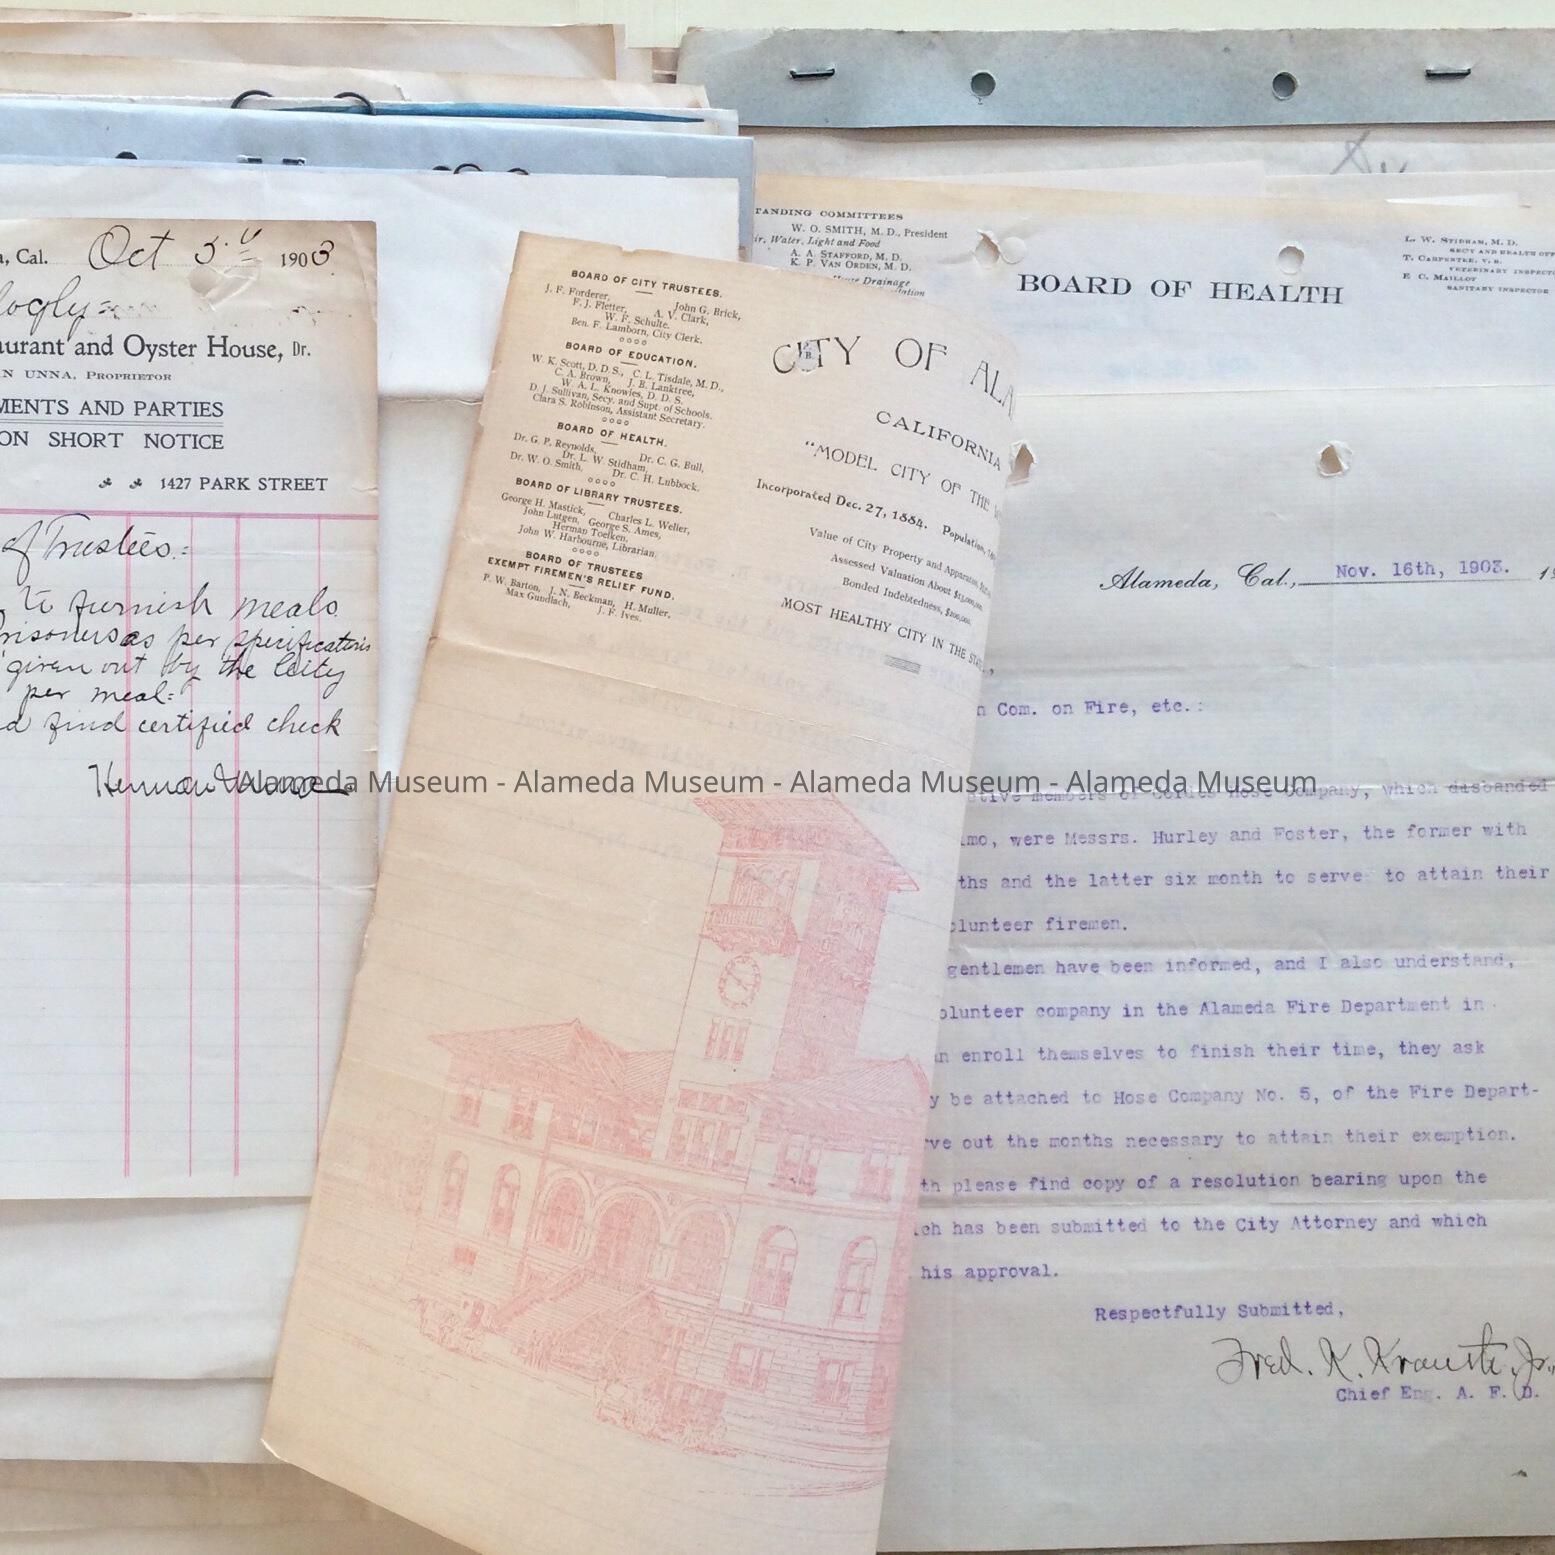 a, Cal. Oct 3rd 1903
aurant and Oyster House, Dr.
AN UNNA, PROPRIETOR
MENTS AND PARTIES
ON SHORT NOTICE
1427 PARK STREET
of Trustees:=
to furnish meals
risoners as per specifications
given out by the City
per meal:=
d find certified check
Herman Unna
BOARD OF CITY TRUSTEES.
J. F. Forderer, John G. Brick,
F. J. Fletter, A. V. Clark,
W. F. Schulte.
Ben. F. Lamborn, City Clerk.
BOARD OF EDUCATION.
W. K. Scott, D. D. S., C. L. Tisdale, M. D.,
C. A. Brown, J. B. Lanktree,
W. A. L. Knowles, D. D. S.
D. J. Sullivan, Secy. and Supt. of Schools.
Clara S. Robinson, Assistant Secretary.
BOARD OF HEALTH.
Dr. G. P. Reynolds, Dr. C. G. Bull,
Dr. L. W. Stidham,
Dr. W. O. Smith, Dr. C. H. Lubbock.
BOARD OF LIBRARY TRUSTEES.
George H. Mastick, Charles L. Weller,
John Lutgen, George S. Ames,
Herman Toelken,
John W. Harbourne, Librarian.
BOARD OF TRUSTEES
EXEMPT FIREMEN'S RELIEF FUND.
P. W. Barton, J. N. Beckman, H. Muller,
Max Gundlach, J. F. Ives.
CITY OF ALA
CALIFORNIA
"MODEL CITY OF THE
Incorporated Dec. 27, 1884. Population,
Value of City Property and Apparatus,
Assessed Valuation About $13,000,000.
Bonded Indebtedness, $200,000.
MOST HEALTHY CITY IN THE STATE
TANDING COMMITTEES
W. O. SMITH, M. D., President
ir, Water, Light and Food
A. A. STAFFORD, M. D.
K. P. VAN ORDEN, M. D.
House Drainage
BOARD OF HEALTH
L. W. STIDHAM, M. D.
SECY AND HEALTH OFF
T. CARPENTER, V. S.
VETERINARY INSPECTO
E. C. MAILLOT
SANITARY INSPECTOR
Alameda, Cal., Nov. 16th, 1903. 19
n Com. on Fire, etc.:
tive members of Hose Company, which disbanded
imo, were Messrs. Hurley and Foster, the former with
ths and the latter six month to serve to attain their
olunteer firemen.
gentlemen have been informed, and I also understand,
olunteer company in the Alameda Fire Department in
n enroll themselves to finish their time, they ask
y be attached to Hose Company No. 5, of the Fire Depart-
rve out the months necessary to attain their exemption.
th please find copy of a resolution bearing upon the
ich has been submitted to the City Attorney and which
his approval.
Respectfully Submitted,
Fred. K. Krauth, Jr.,
Chief Eng. A. F. D.
Alameda Museum - Alameda Museum - Alameda Museum - Alameda Museum